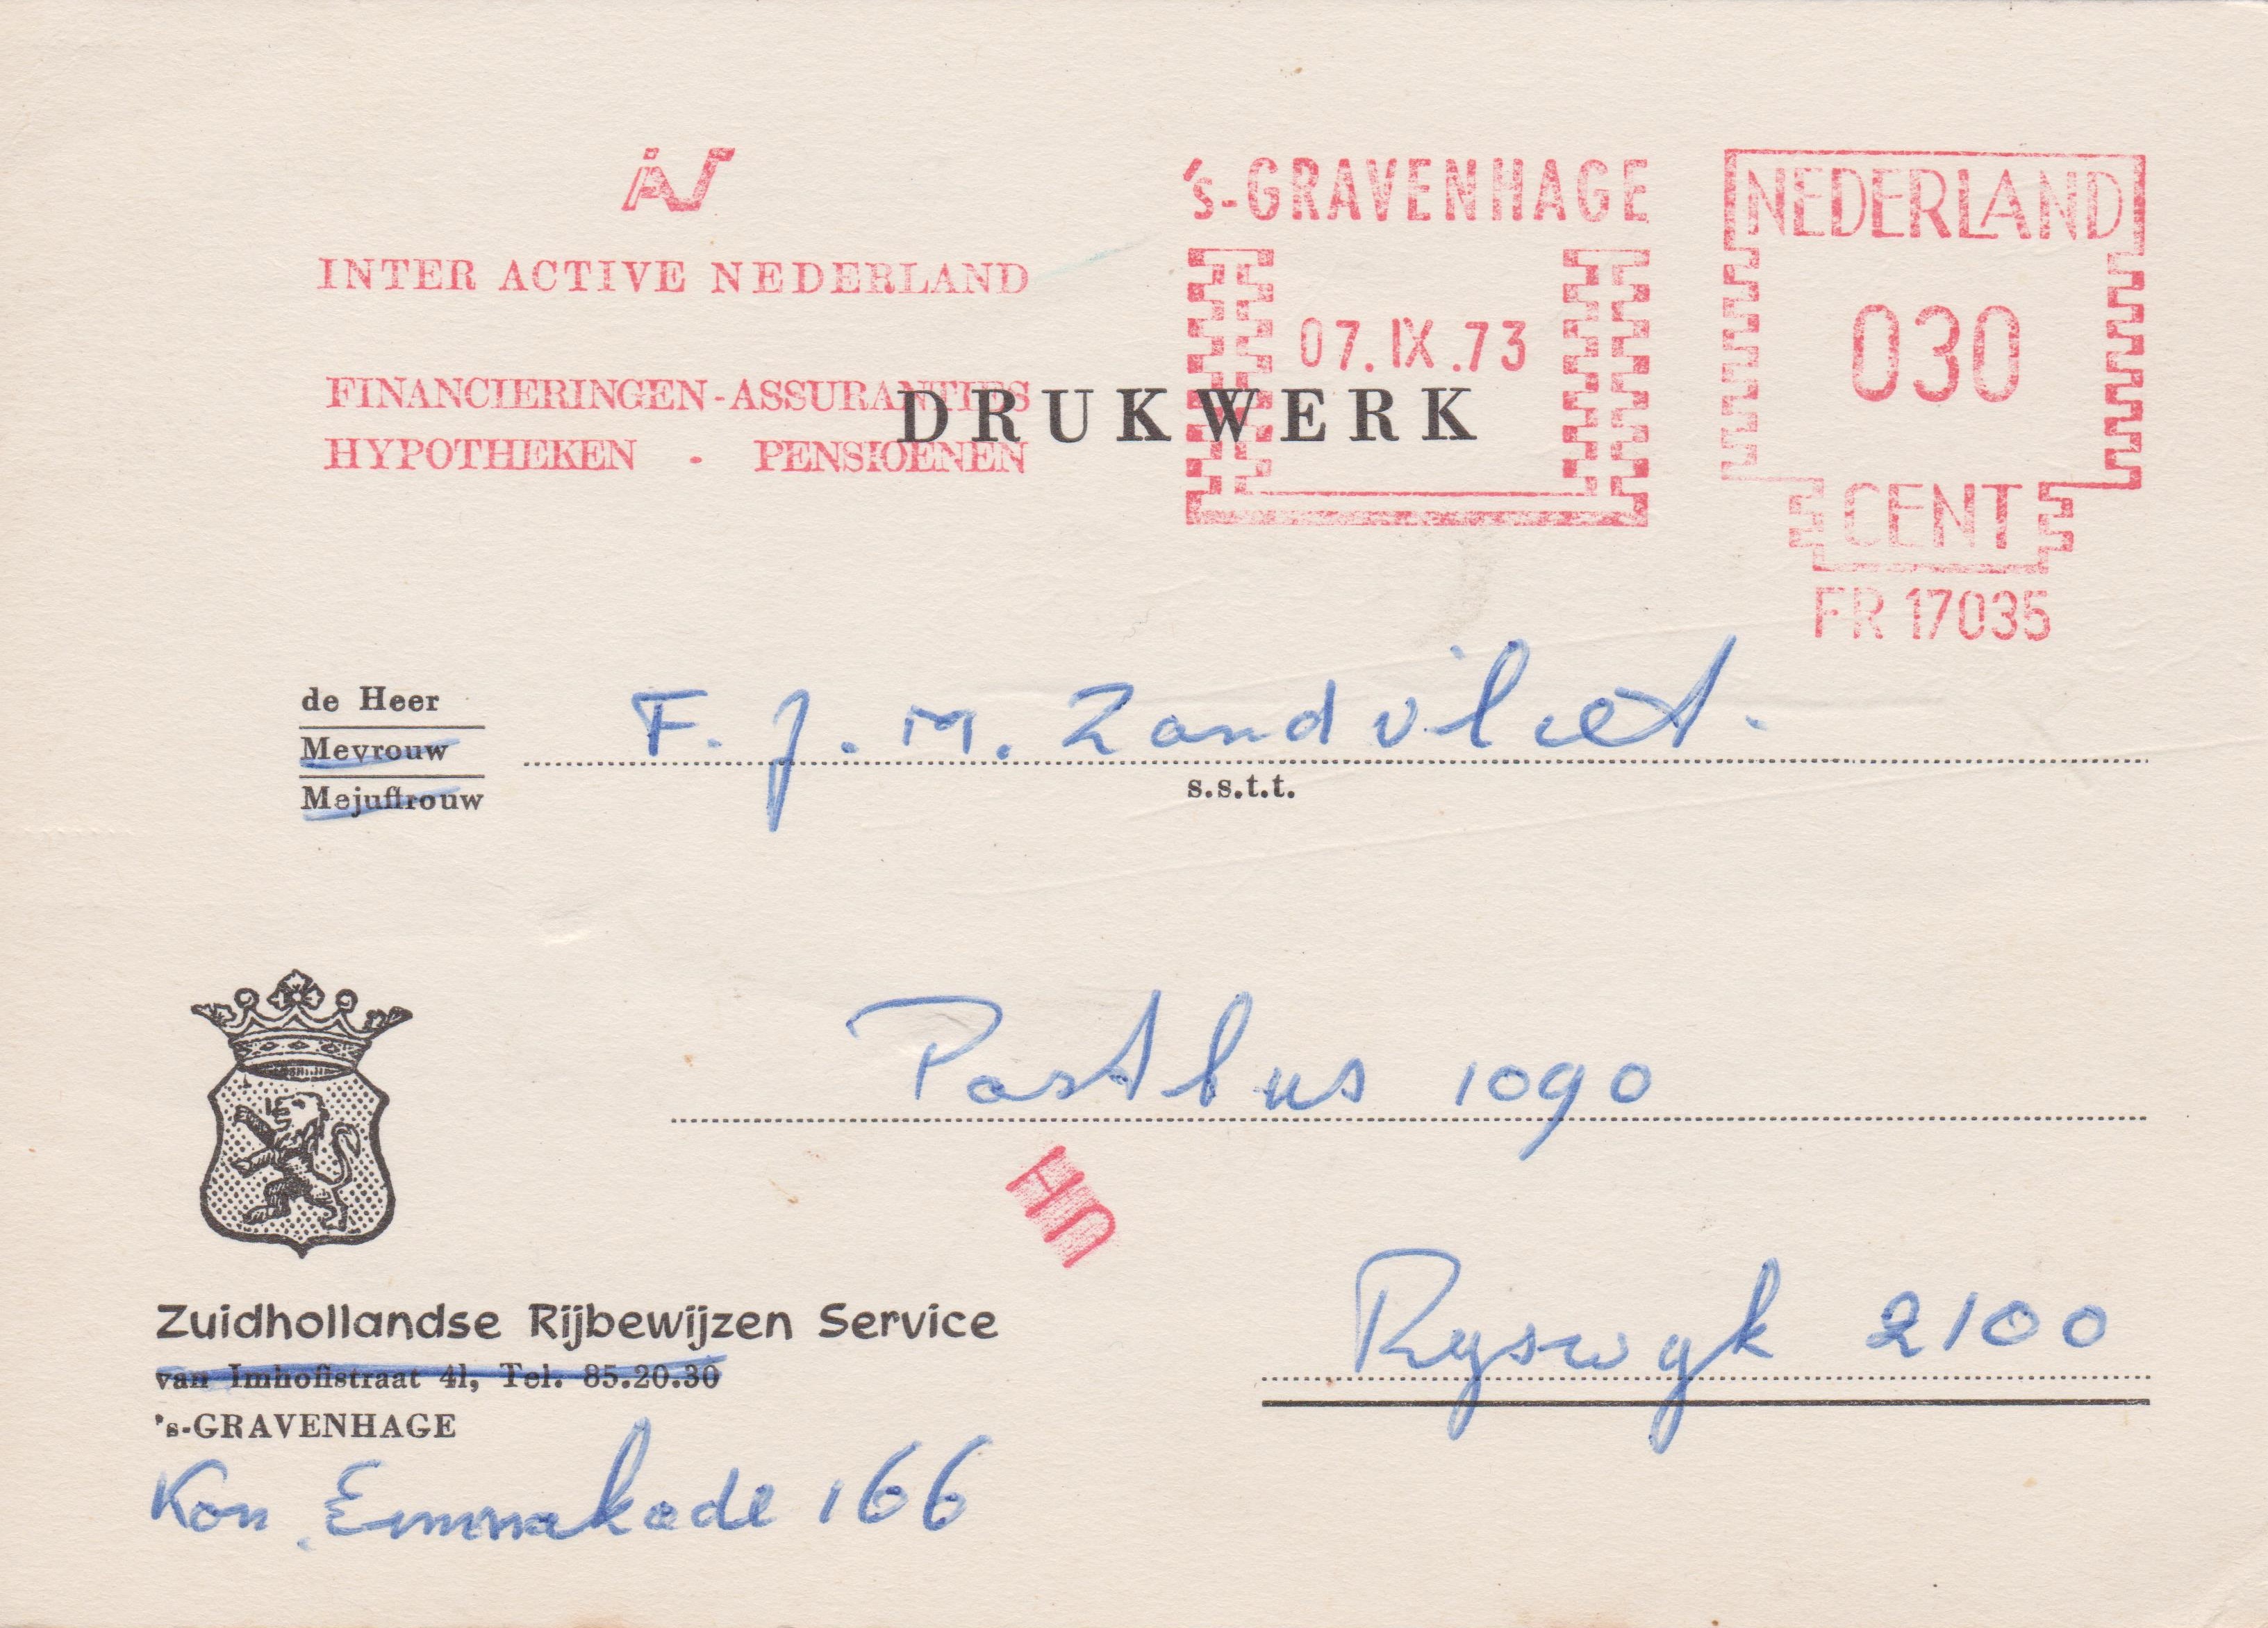 's-GRAVENHAGE
NEDERLAND
INTER ACTIVE NEDERLAND
07.IX.73
030
FINANCIERINGEN-ASSURANTIES
DRUKWERK
HYPOTHEKEN - PENSIOENEN
CENT
FR 17035
de Heer
Mevrouw
Mejuffrouw
F. J. M. Zandvliet.
s.s.t.t.
Postbus 1090
Zuidhollandse Rijbewijzen Service
van Imhoffstraat 41, Tel. 85.20.30
's-GRAVENHAGE
Kon. Emmakade 166
Ryswyk 2100